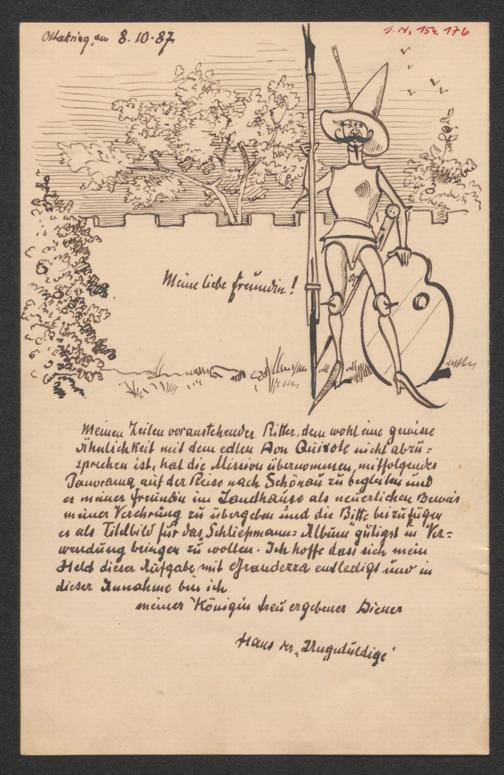 Ottakring, am 8.10.87
J. N. 154.176
Meine liebe Freundin!
Meinen Zeilen voranstehender Ritter, dem wohl eine gewisse
Ähnlichkeit mit dem edlen Don Quixote nicht abzu=
sprechen ist, hat die Mission übernommen, mitfolgendes
Panorama auf der Reise nach Schönau zu begleiten und
es meiner Freundin im Landhause als neuerlichen Beweis
meiner Verehrung zu übergeben und die Bitte beizufügen
es als Titelbild für das Schliepmann=Album gütigst in Ver=
wendung bringen zu wollen. Ich hoffe dass sich mein
Held dieser Aufgabe mit Grandezza entledigt und in
dieser Annahme bin ich
meiner Königin treu ergebener Diener
Hans der „Ungeduldige"